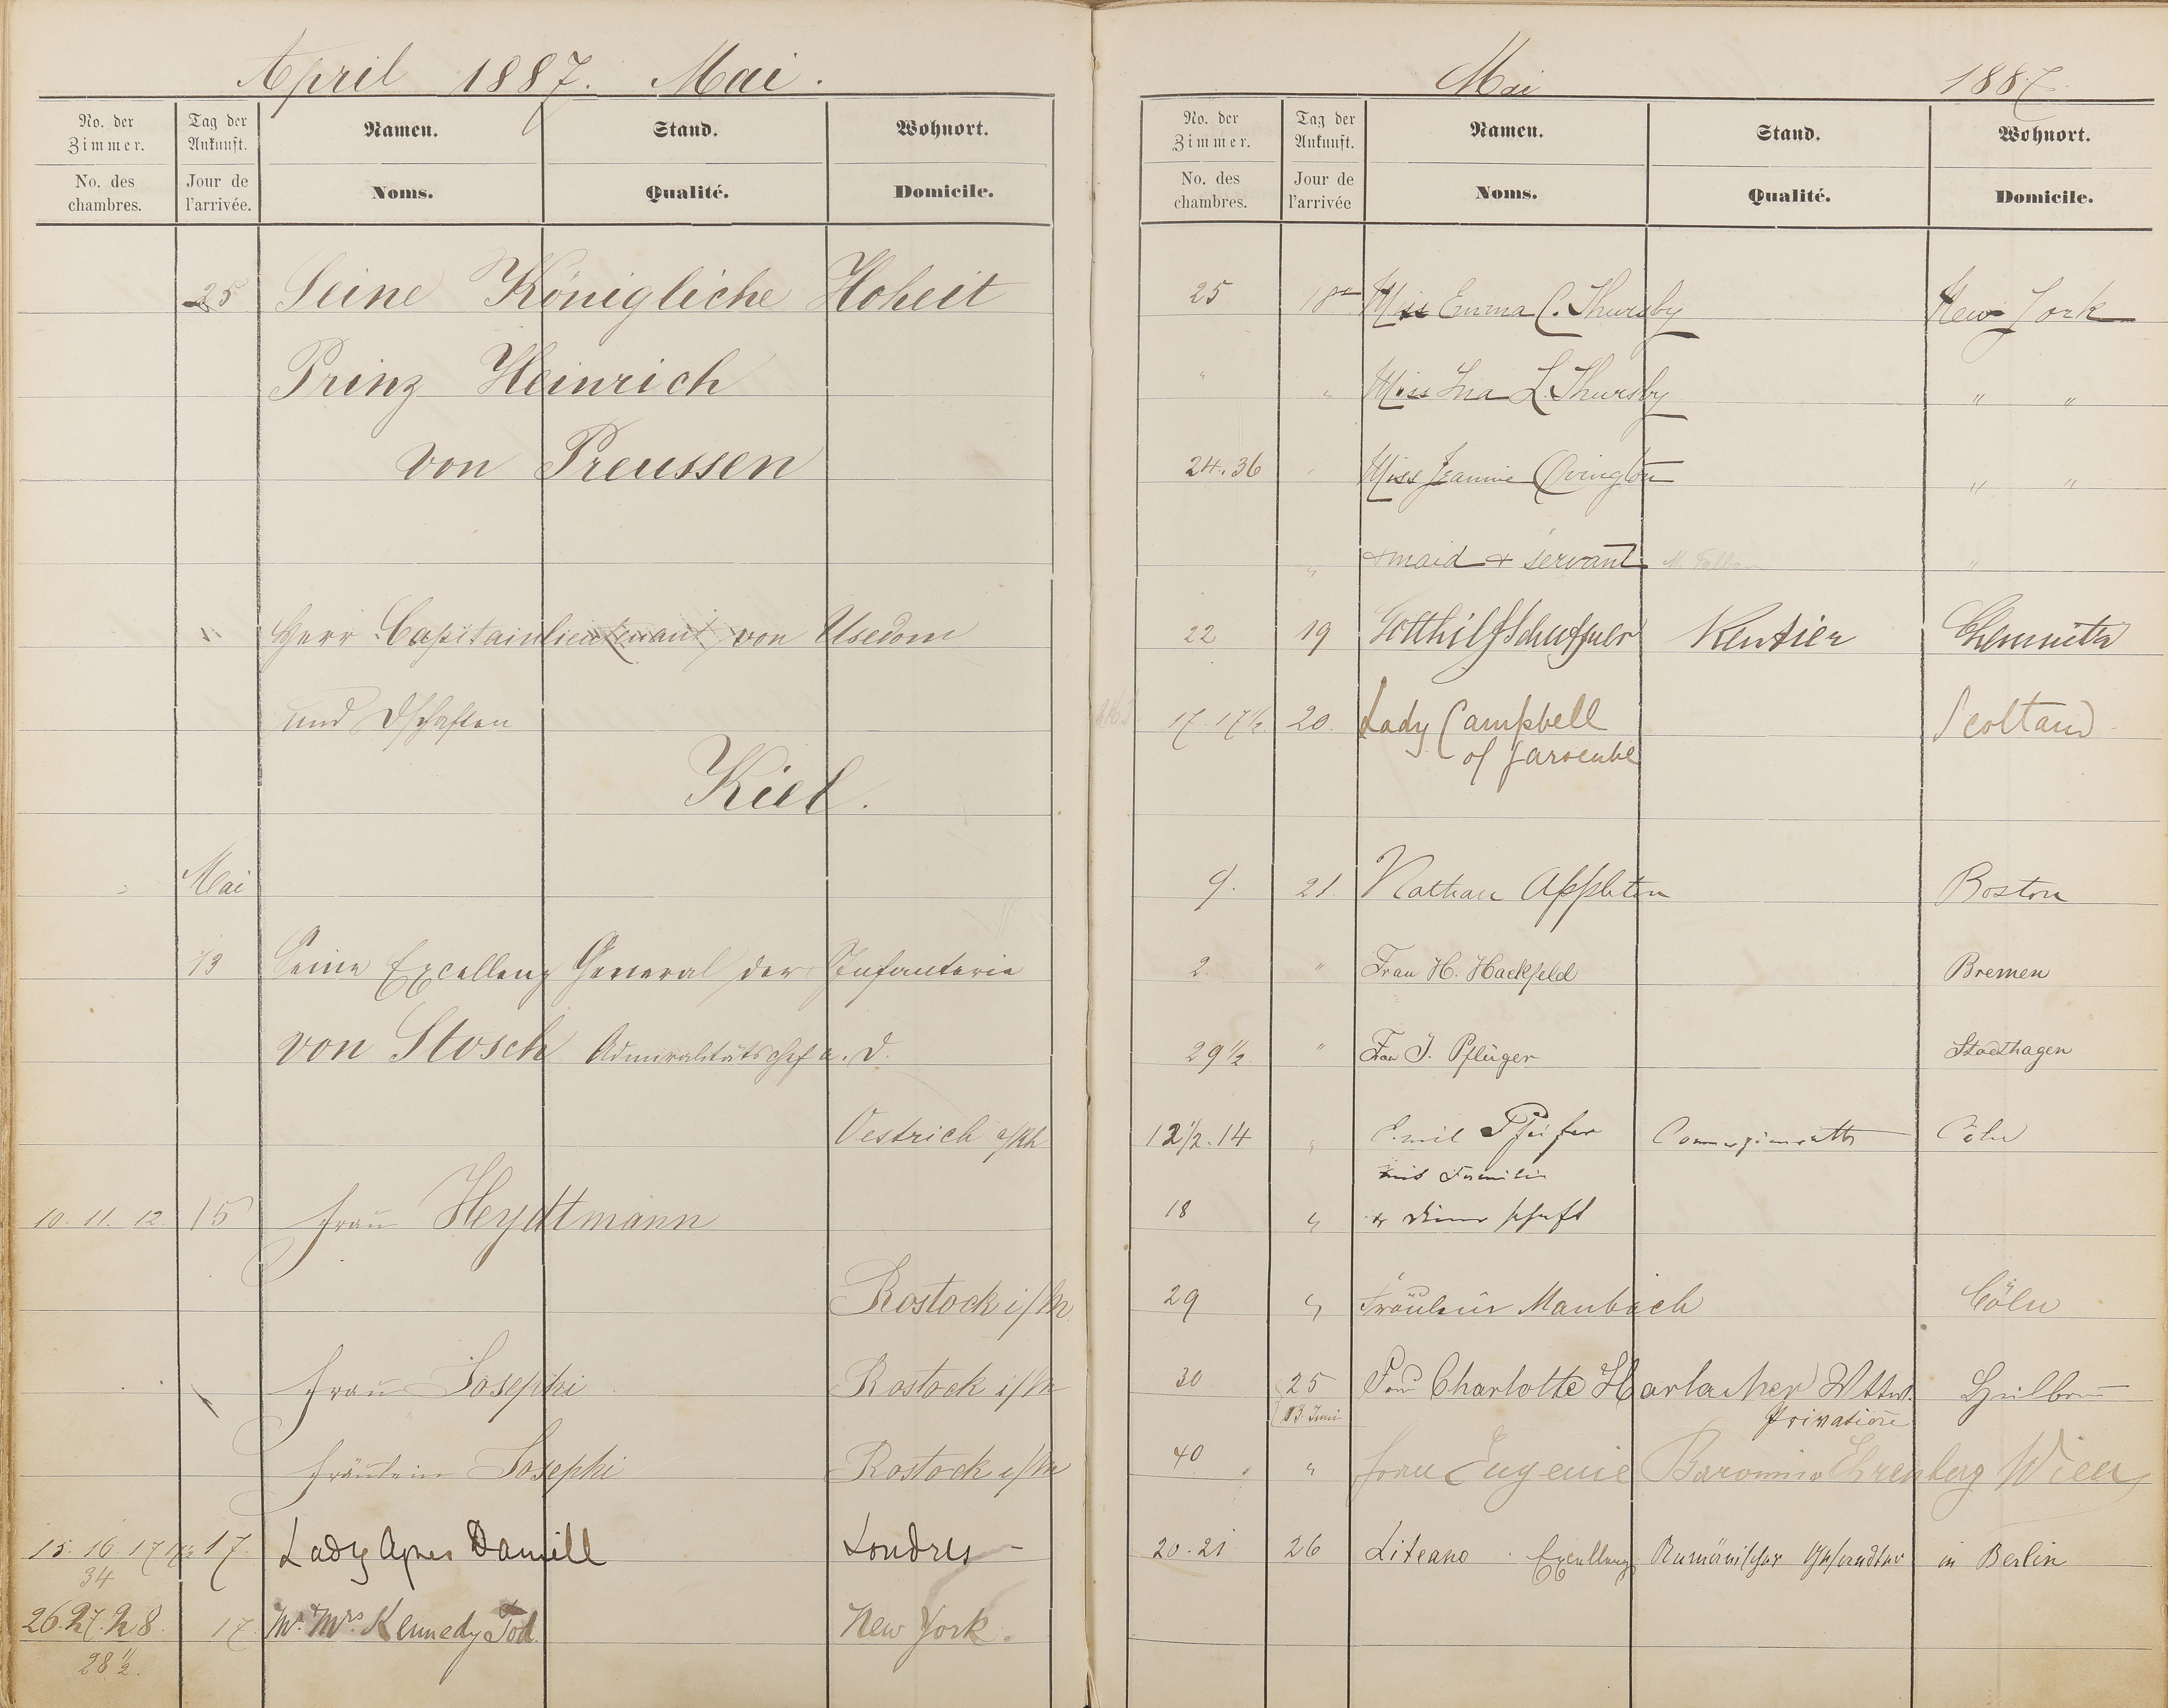 April 1887. Mai.
No. der Zimmer. Tag der Ankunft. Namen. Stand. Wohnort.
No. des chambres. Jour de l'arrivée. Noms. Qualité. Domicile.
25 Seine Königliche Hoheit
Prinz Heinrich
von Preussen
" Herr Capitainlieutenant von Usedom
und
Kiel.
Mai
13 Seine Excellenz General der Infanterie
von Stosch Admiralitätschef a. D.
Oestrich a/Rh
10. 11. 12. 15 Frau Heydtmann
Rostock i/M
Frau Josephi Rostock i/M
Fräulein Josephi Rostock i/M
15. 16. 17 17½ 17. Lady Agnes Daniell Londres
34
26. 27. 28. 17. Mr. Mrs. Kennedy Tod. New York.
28½.
Mai 1887.
No. der Zimmer. Tag der Ankunft. Namen. Stand. Wohnort.
No. des chambres. Jour de l'arrivée Noms. Qualité. Domicile.
25 18 Miss Emma C. Thursby New York
" " Miss Ina L. Thursby " "
24. 36 " Miss Jeannie Ovington " "
" + maid + servant "
22 19 Gotthilf Rentier Chemnitz
17. 17½. 20. Lady Campbell Scotland
of Garscube
9. 21. Nathan Appleton Boston
2 " Frau H. Hackfeld Bremen
29½ " Frau J. Pflüger Stadthagen
12½. 14 " Emil Pfeifer Commerzienrath Cöln
mit Familie
18 " & Dienerschaft
29 " Fräulein Maubach Cöln
30 25 Frau Charlotte Harlacher Wttw. Heilbronn
13. Juni Privatiere
40 " Frau Eugenie Baronin Ehrenberg Wien
20. 21 26 Liteano Excellenz Rumänischer Gesandter in Berlin